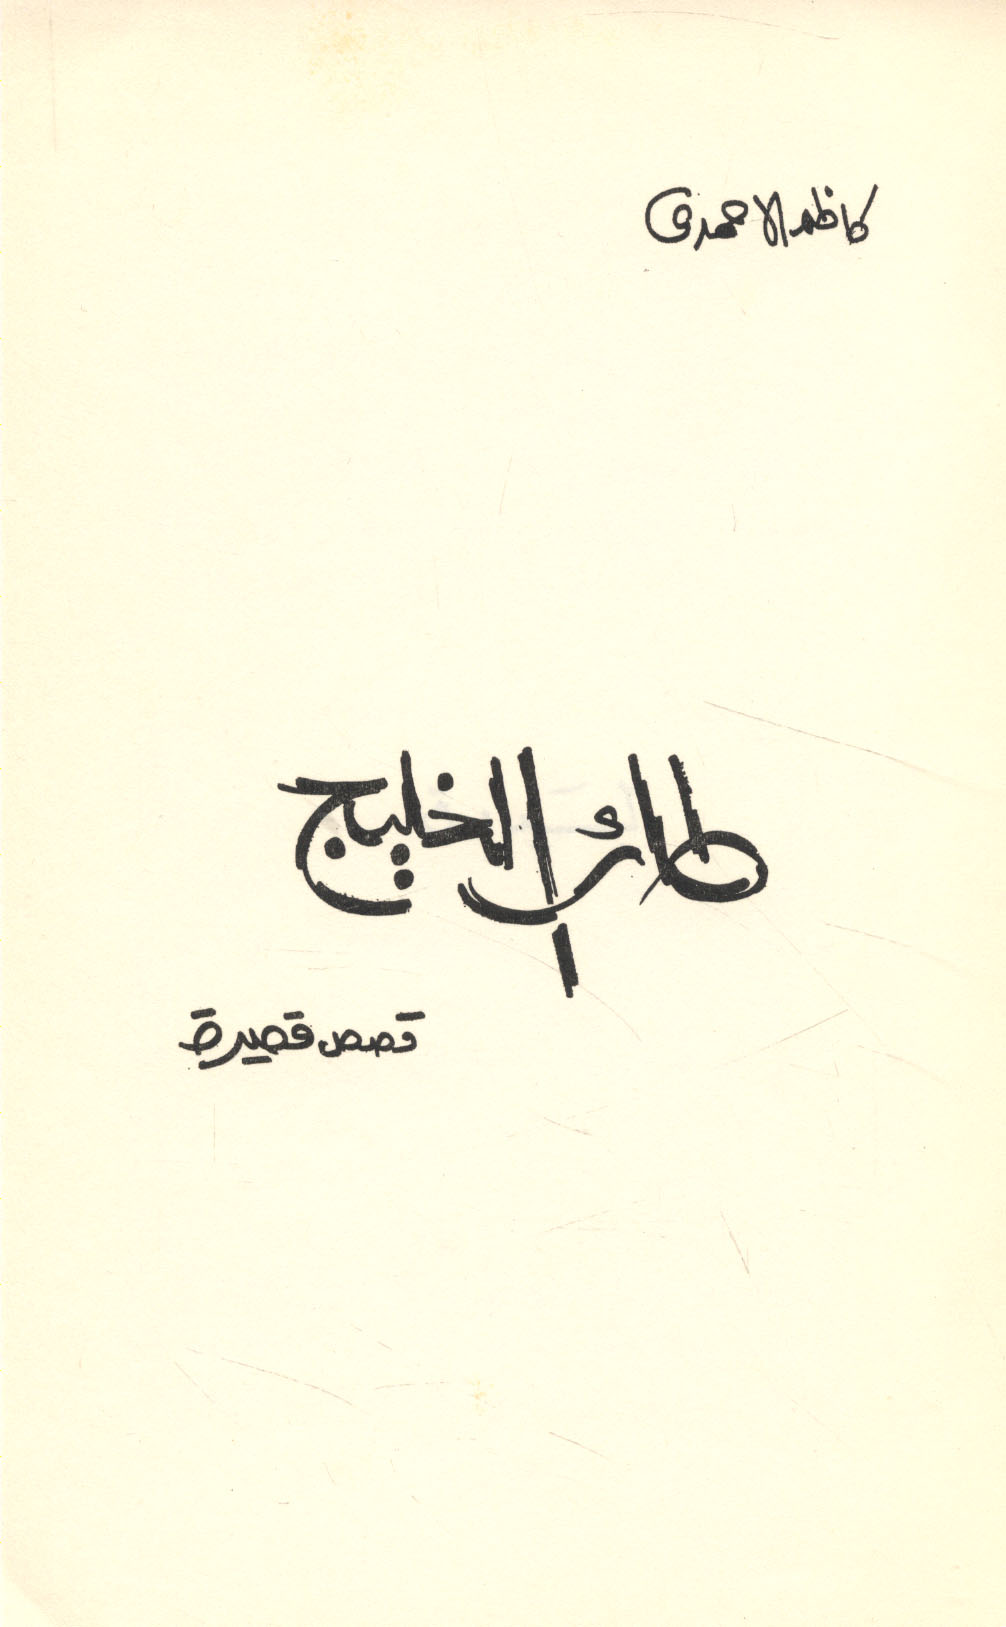 كاظم الاحمدي
طائر الخليج
قصص قصيرة